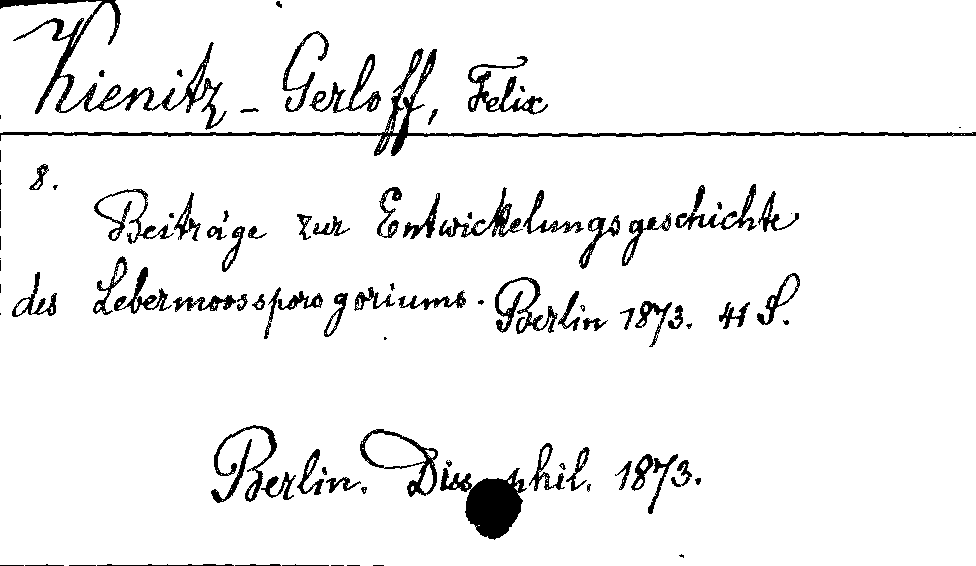 Kienitz-Gerloff, Felix
8.
Beiträge zur Entwickelungsgeschichte
des Lebermoossporogoniums. Berlin 1873. 41 S.
Berlin. Diss. phil. 1873.